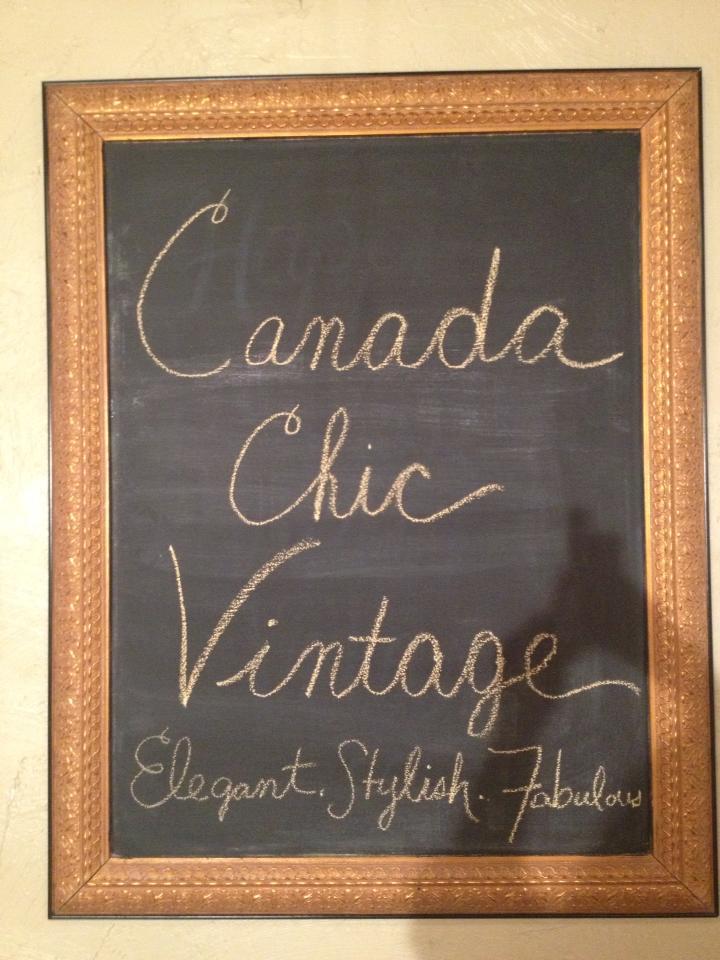 Canada
Chic
Vintage
Elegant. Stylish. Fabulous